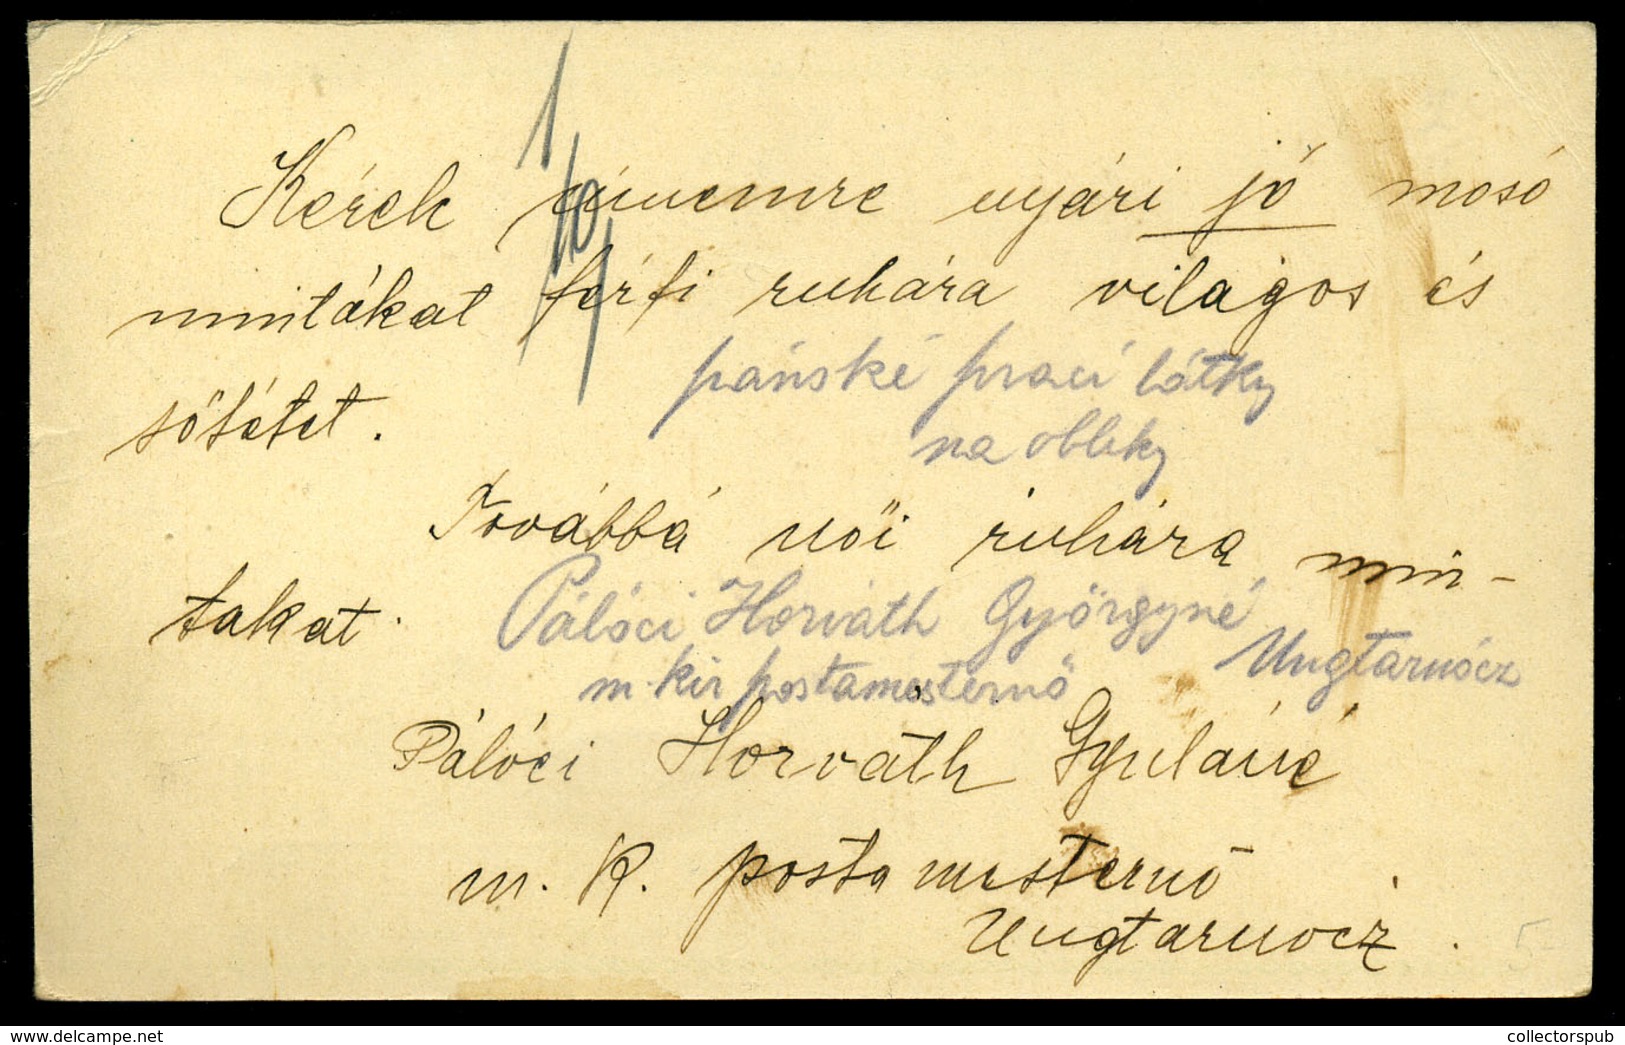 Kérek címemre nyári jó mosó
mintákat férfi ruhára világos és
pánské prací látky
sötétet.
na obleky
Továbbá női ruhára min-
takat.
Pálóci Horváth Györgyné
Ungtarnócz
m. kir postamesternő
Pálóci Horváth Gyuláné
m. k. postamesternő
Ungtarnócz.
collectorspub